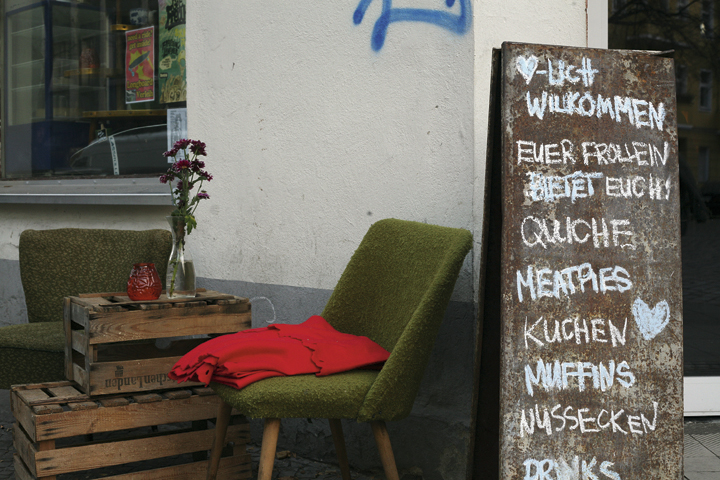 ♥-LICH
WILLKOMMEN
EUER FROLLEIN
BIETET EUCH:
QUICHE
MEATPIES
KUCHEN
MUFFINS
NUSSECKEN
DRINKS